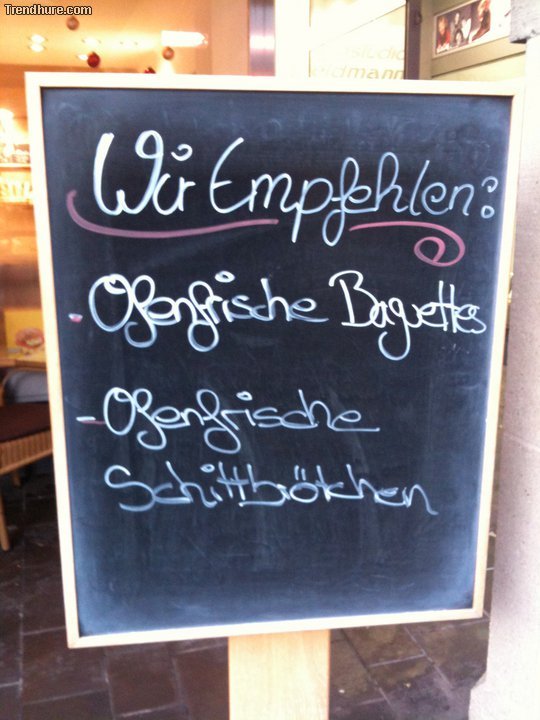 Trendhure.com
Wir Empfehlen:
- Ofenfrische Baguettes
- Ofenfrische
Schittbrötchen